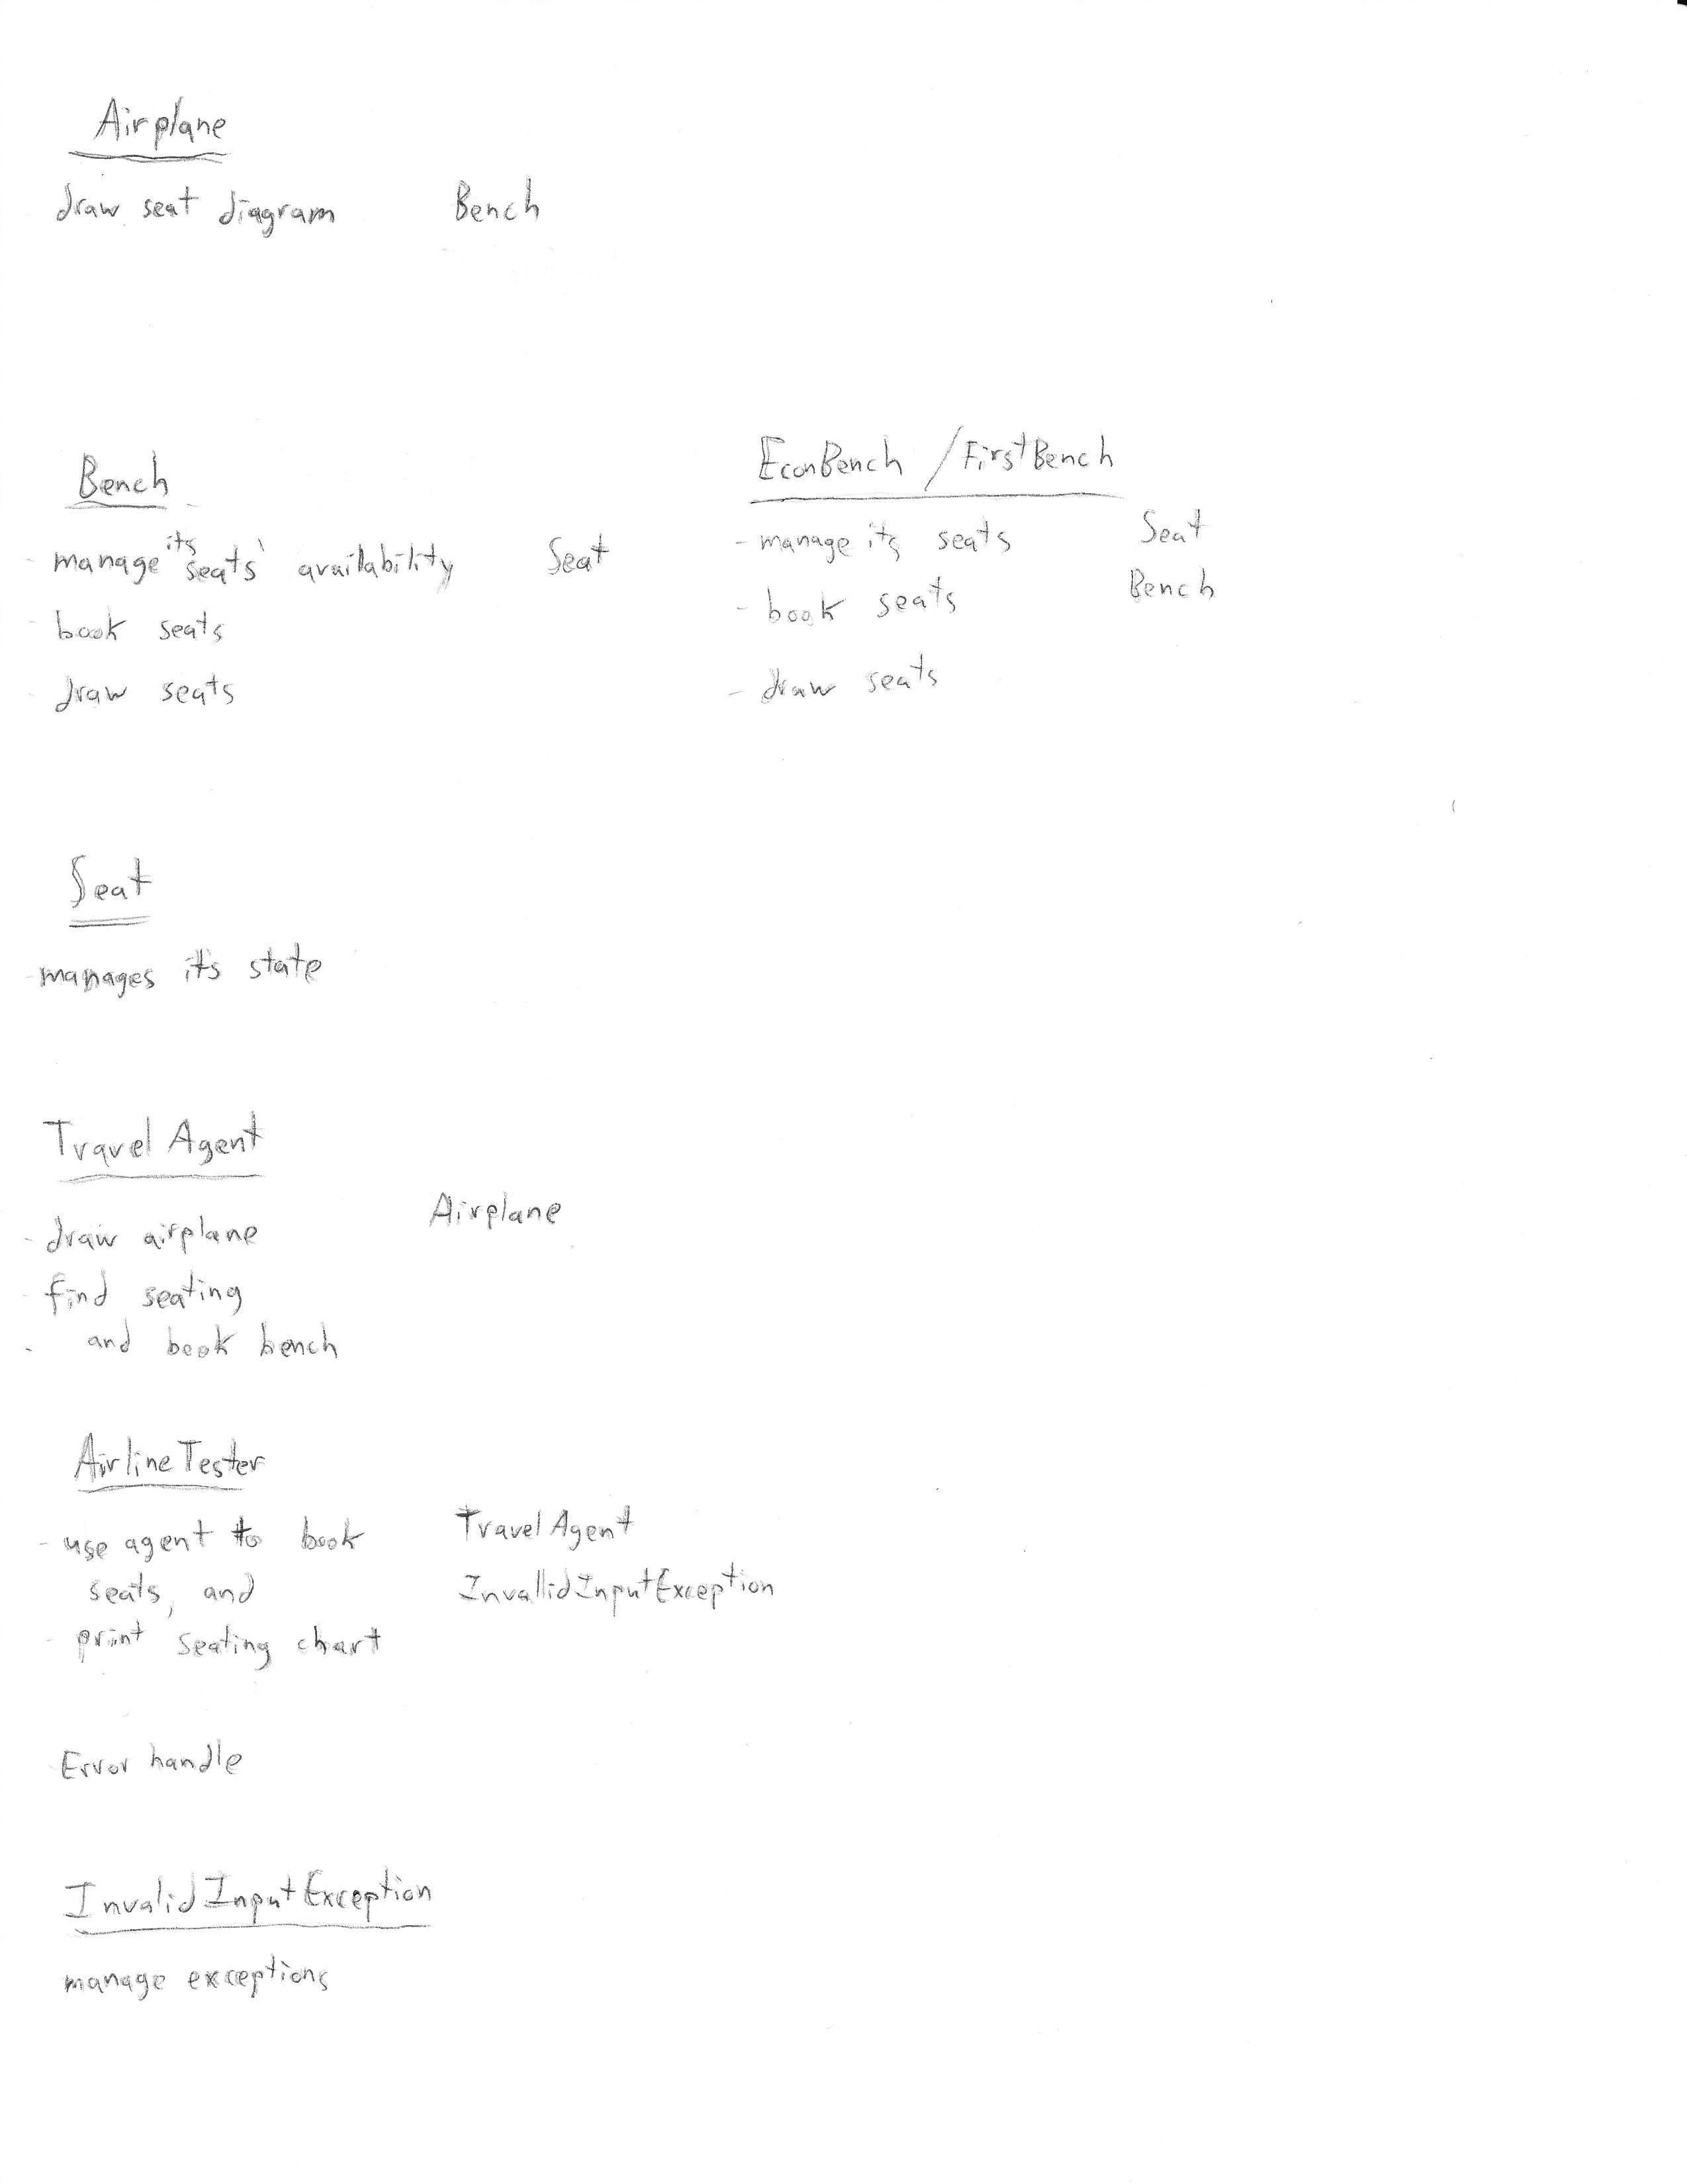 Airplane
draw seat diagram Bench
Bench
manage its seats' availability Seat
book seats
draw seats
EconBench / FirstBench
- manage its seats Seat
- book seats Bench
- draw seats
Seat
- manages it's state
Travel Agent
- draw airplane Airplane
- find seating
- and book bench
AirlineTester
- use agent to book TravelAgent
seats, and InvallidInputException
- print seating chart
Error handle
InvalidInputException
manage exceptions